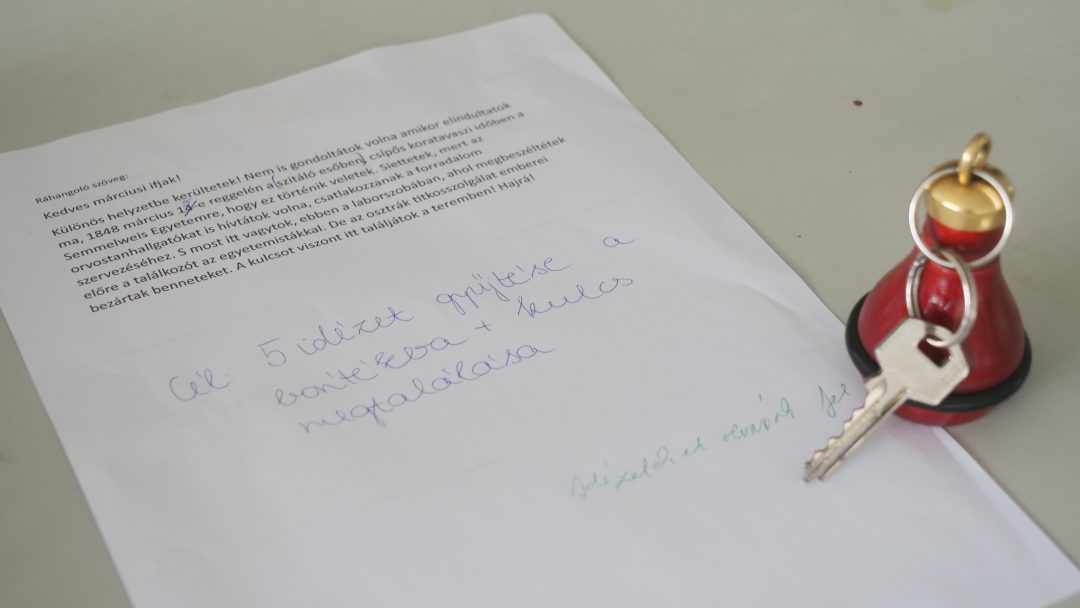 Ráhangoló szöveg:
Kedves márciusi ifjak!
Különös helyzetbe kerültetek! Nem is gondoltátok volna amikor elindultatok
ma, 1848 március 15-e reggelén a szitáló esőben, csípős koratavaszi időben a
Semmelweis Egyetemre, hogy ez történik veletek. Siettetek, mert az
orvostanhallgatókat is hívtátok volna, csatlakozzanak a forradalom
szervezéséhez. S most itt vagytok, ebben a laborszobában, ahol megbeszéltétek
előre a találkozót az egyetemistákkal. De az osztrák titkosszolgálat emberei
bezártak benneteket. A kulcsot viszont itt találjátok a teremben! Hajrá!
Cél: 5 idézet gyűjtése a
borítékba + kulcs
megtalálása
Idézeteket olvassák fel